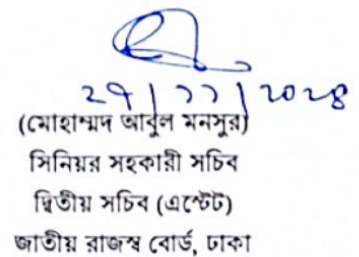 ২৭/১১/২০২৪
(মোহাম্মদ আবুল মনসুর)
সিনিয়র সহকারী সচিব
দ্বিতীয় সচিব (এস্টেট)
জাতীয় রাজস্ব বোর্ড, ঢাকা